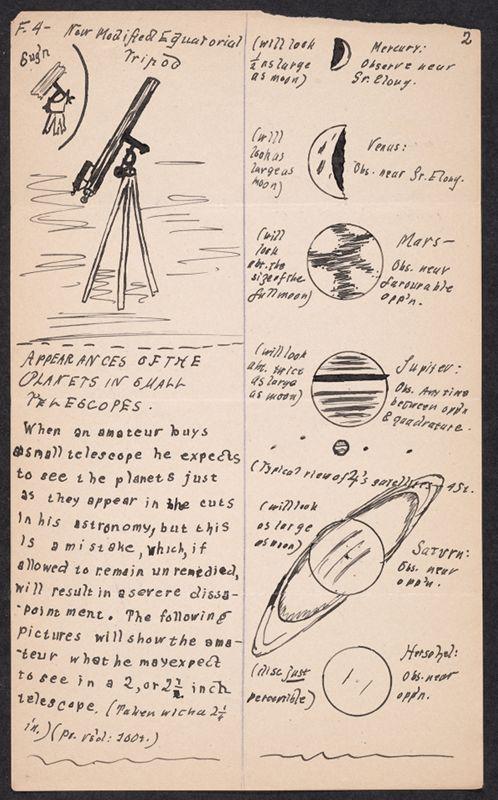 F. 4- New Modified Equatorial
Tripod
Enq'n
APPEARANCES OF THE
PLANETS IN SMALL
TELESCOPES.
When an amateur buys
a small telescope he expects
to see the planets just
as they appear in the cuts
in his astronomy, but this
is a mistake, which, if
allowed to remain unremedied,
will result in a severe dissa-
-pointment. The following
pictures will show the ama-
-teur what he may expect
to see in a 2, or 2½ inch
telescope. (Taken with a 2¼
in.) (Po. r's'd: 100t.)
2
(will look
½ as large
as moon)
Mercury:
Observe near
Gr. Elong.
(will
look as
large as
moon)
Venus:
Obs. near Gr. Elong.
(will
look
abt. the
size of the
full moon)
Mars-
Obs. near
favourable
opp'n.
(will look
abt. twice
as large
as moon)
Jupiter:
Obs. Any time
between opp'n
& quadrature.
(Typical view of ♃'s satellites - 45t.
(will look
as large
as moon)
Saturn:
Obs. near
opp'n.
(Disc just
perceptible)
Herschel:
Obs. near
opp'n.